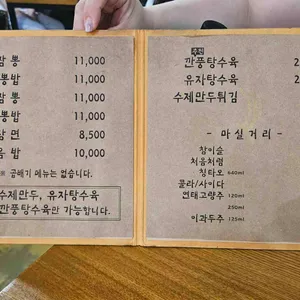 짬뽕 11,000
뽕밥 11,000
짬뽕 11,000
뽕밥 11,000
탕면 8,500
음밥 10,000
※ 곱배기 메뉴는 없습니다.
수제만두, 유자탕수육
깐풍탕수육만 가능합니다.
추천
깐풍탕수육 2
유자탕수육 2
수제만두튀김
- 마실거리 -
참이슬
처음처럼
칭타오 640ml
콜라/사이다
연태고량주 125ml
250ml
이과두주 125ml